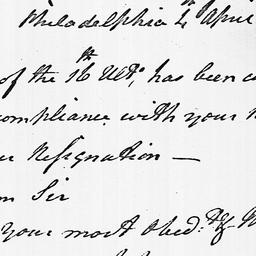 Philadelphia 4th April
of the 16th Ulto, has been
compliance with your
Resignation —
Sir
your most Obed. &